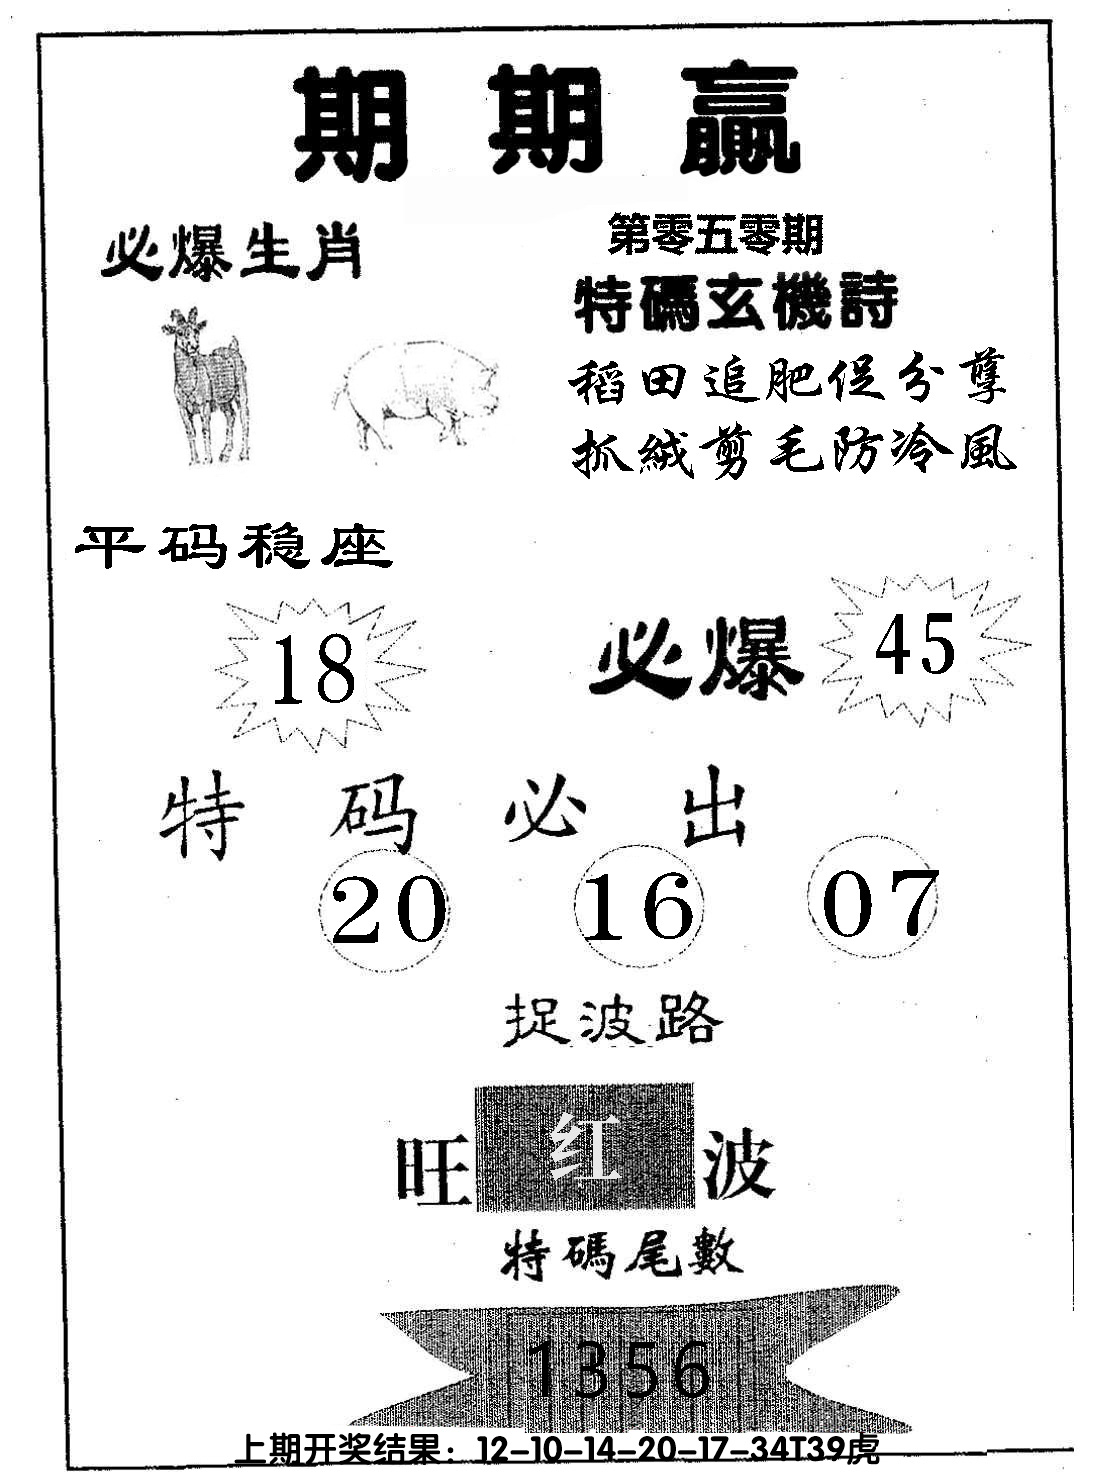 期期赢
必爆生肖
第零五零期
特碼玄機詩
稻田追肥促分孽
抓絨剪毛防冷風
平码稳座
18
必爆
45
特码必出
20 16 07
捉波路
旺红波
特碼尾數
1356
上期开奖结果：12-10-14-20-17-34T39虎